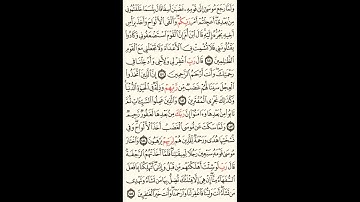 وَلَمَّا رَجَعَ مُوسَىٰٓ إِلَىٰ قَوْمِهِۦ غَضْبَٰنَ أَسِفًا قَالَ بِئْسَمَا خَلَفْتُمُونِي
مِنۢ بَعْدِيٓ أَعَجِلْتُمْ أَمْرَ رَبِّكُمْ وَأَلْقَى ٱلْأَلْوَاحَ وَأَخَذَ بِرَأْسِ
أَخِيهِ يَجُرُّهُۥٓ إِلَيْهِ قَالَ ٱبْنَ أُمَّ إِنَّ ٱلْقَوْمَ ٱسْتَضْعَفُونِي وَكَادُوا۟
يَقْتُلُونَنِي فَلَا تُشْمِتْ بِيَ ٱلْأَعْدَآءَ وَلَا تَجْعَلْنِي مَعَ ٱلْقَوْمِ
ٱلظَّٰلِمِينَ ١٥٠ قَالَ رَبِّ ٱغْفِرْ لِي وَلِأَخِي وَأَدْخِلْنَا فِي
رَحْمَتِكَ وَأَنتَ أَرْحَمُ ٱلرَّٰحِمِينَ ١٥١ إِنَّ ٱلَّذِينَ ٱتَّخَذُوا۟
ٱلْعِجْلَ سَيَنَالُهُمْ غَضَبٌ مِّن رَّبِّهِمْ وَذِلَّةٌ فِي ٱلْحَيَوٰةِ ٱلدُّنْيَا
وَكَذَٰلِكَ نَجْزِي ٱلْمُفْتَرِينَ ١٥٢ وَٱلَّذِينَ عَمِلُوا۟ ٱلسَّيِّـَٔاتِ ثُمَّ
تَابُوا۟ مِنۢ بَعْدِهَا وَءَامَنُوٓا۟ إِنَّ رَبَّكَ مِنۢ بَعْدِهَا لَغَفُورٌ رَّحِيمٌ
١٥٣ وَلَمَّا سَكَتَ عَن مُّوسَى ٱلْغَضَبُ أَخَذَ ٱلْأَلْوَاحَ وَفِي
نُسْخَتِهَا هُدًى وَرَحْمَةٌ لِّلَّذِينَ هُمْ لِرَبِّهِمْ يَرْهَبُونَ ١٥٤ وَٱخْتَارَ
مُوسَىٰ قَوْمَهُۥ سَبْعِينَ رَجُلًا لِّمِيقَٰتِنَا فَلَمَّآ أَخَذَتْهُمُ ٱلرَّجْفَةُ
قَالَ رَبِّ لَوْ شِئْتَ أَهْلَكْتَهُم مِّن قَبْلُ وَإِيَّٰيَ أَتُهْلِكُنَا بِمَا فَعَلَ
ٱلسُّفَهَآءُ مِنَّآ إِنْ هِيَ إِلَّا فِتْنَتُكَ تُضِلُّ بِهَا مَن تَشَآءُ وَتَهْدِي
مَن تَشَآءُ أَنتَ وَلِيُّنَا فَٱغْفِرْ لَنَا وَٱرْحَمْنَا وَأَنتَ خَيْرُ ٱلْغَٰفِرِينَ ١٥٥